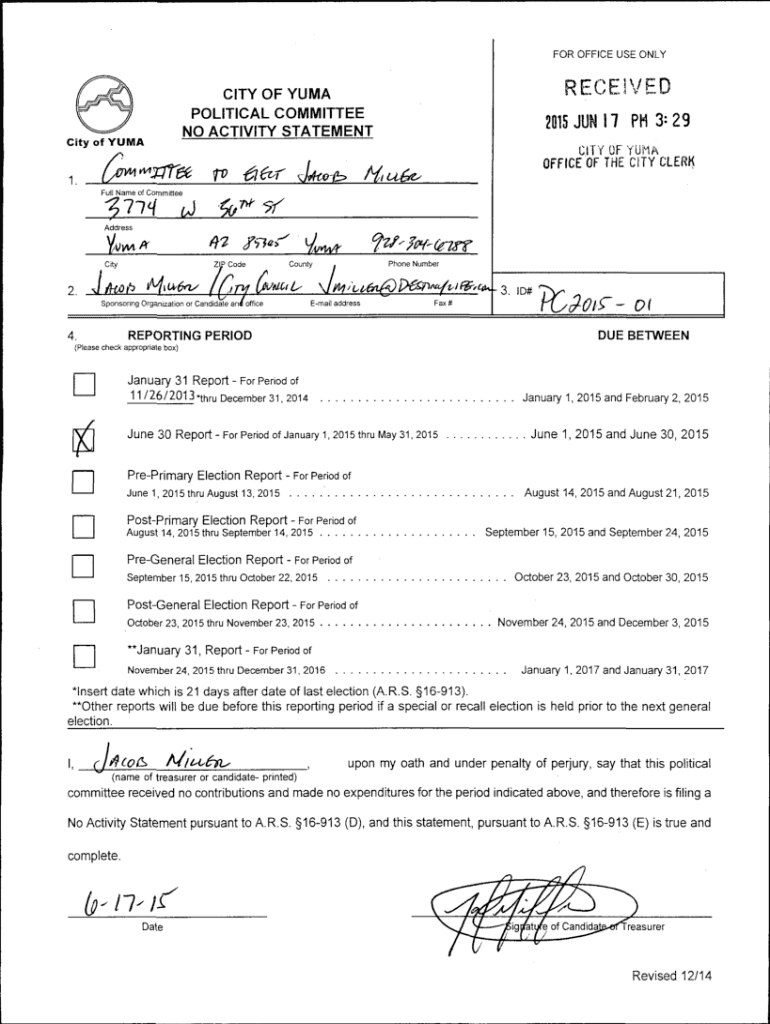 FOR OFFICE USE ONLY
RECEIVED
2015 JUN 17 PM 3:29
CITY OF YUMA
OFFICE OF THE CITY CLERK
City of YUMA
CITY OF YUMA
POLITICAL COMMITTEE
NO ACTIVITY STATEMENT
1. COMMITTEE TO ELECT JACOB MILLER
Full Name of Committee
3774 W 36TH ST
Address
YUMA AZ 85365 YUMA 928-304-6788
City ZIP Code County Phone Number
2. JACOB MILLER / CITY COUNCIL JMILLER@DESTINY4LIFE.com
Sponsoring Organization or Candidate and office E-mail address Fax #
3. ID# PC2015-01
4. REPORTING PERIOD DUE BETWEEN
(Please check appropriate box)
January 31 Report - For Period of
11/26/2013 *thru December 31, 2014 . . . . . . . . . . . . . . . . . . . . . . . . . . January 1, 2015 and February 2, 2015
June 30 Report - For Period of January 1, 2015 thru May 31, 2015 . . . . . . . . . . . . June 1, 2015 and June 30, 2015
Pre-Primary Election Report - For Period of
June 1, 2015 thru August 13, 2015 . . . . . . . . . . . . . . . . . . . . . . . . . . . . . . August 14, 2015 and August 21, 2015
Post-Primary Election Report - For Period of
August 14, 2015 thru September 14, 2015 . . . . . . . . . . . . . . . . . . . . . September 15, 2015 and September 24, 2015
Pre-General Election Report - For Period of
September 15, 2015 thru October 22, 2015 . . . . . . . . . . . . . . . . . . . . . . . . October 23, 2015 and October 30, 2015
Post-General Election Report - For Period of
October 23, 2015 thru November 23, 2015 . . . . . . . . . . . . . . . . . . . . . . . November 24, 2015 and December 3, 2015
**January 31, Report - For Period of
November 24, 2015 thru December 31, 2016 . . . . . . . . . . . . . . . . . . . . . . . January 1, 2017 and January 31, 2017
*Insert date which is 21 days after date of last election (A.R.S. §16-913).
**Other reports will be due before this reporting period if a special or recall election is held prior to the next general
election.
I, JACOB MILLER , upon my oath and under penalty of perjury, say that this political
(name of treasurer or candidate- printed)
committee received no contributions and made no expenditures for the period indicated above, and therefore is filing a
No Activity Statement pursuant to A.R.S. §16-913 (D), and this statement, pursuant to A.R.S. §16-913 (E) is true and
complete.
6-17-15
Date Signature of Candidate or Treasurer
Revised 12/14